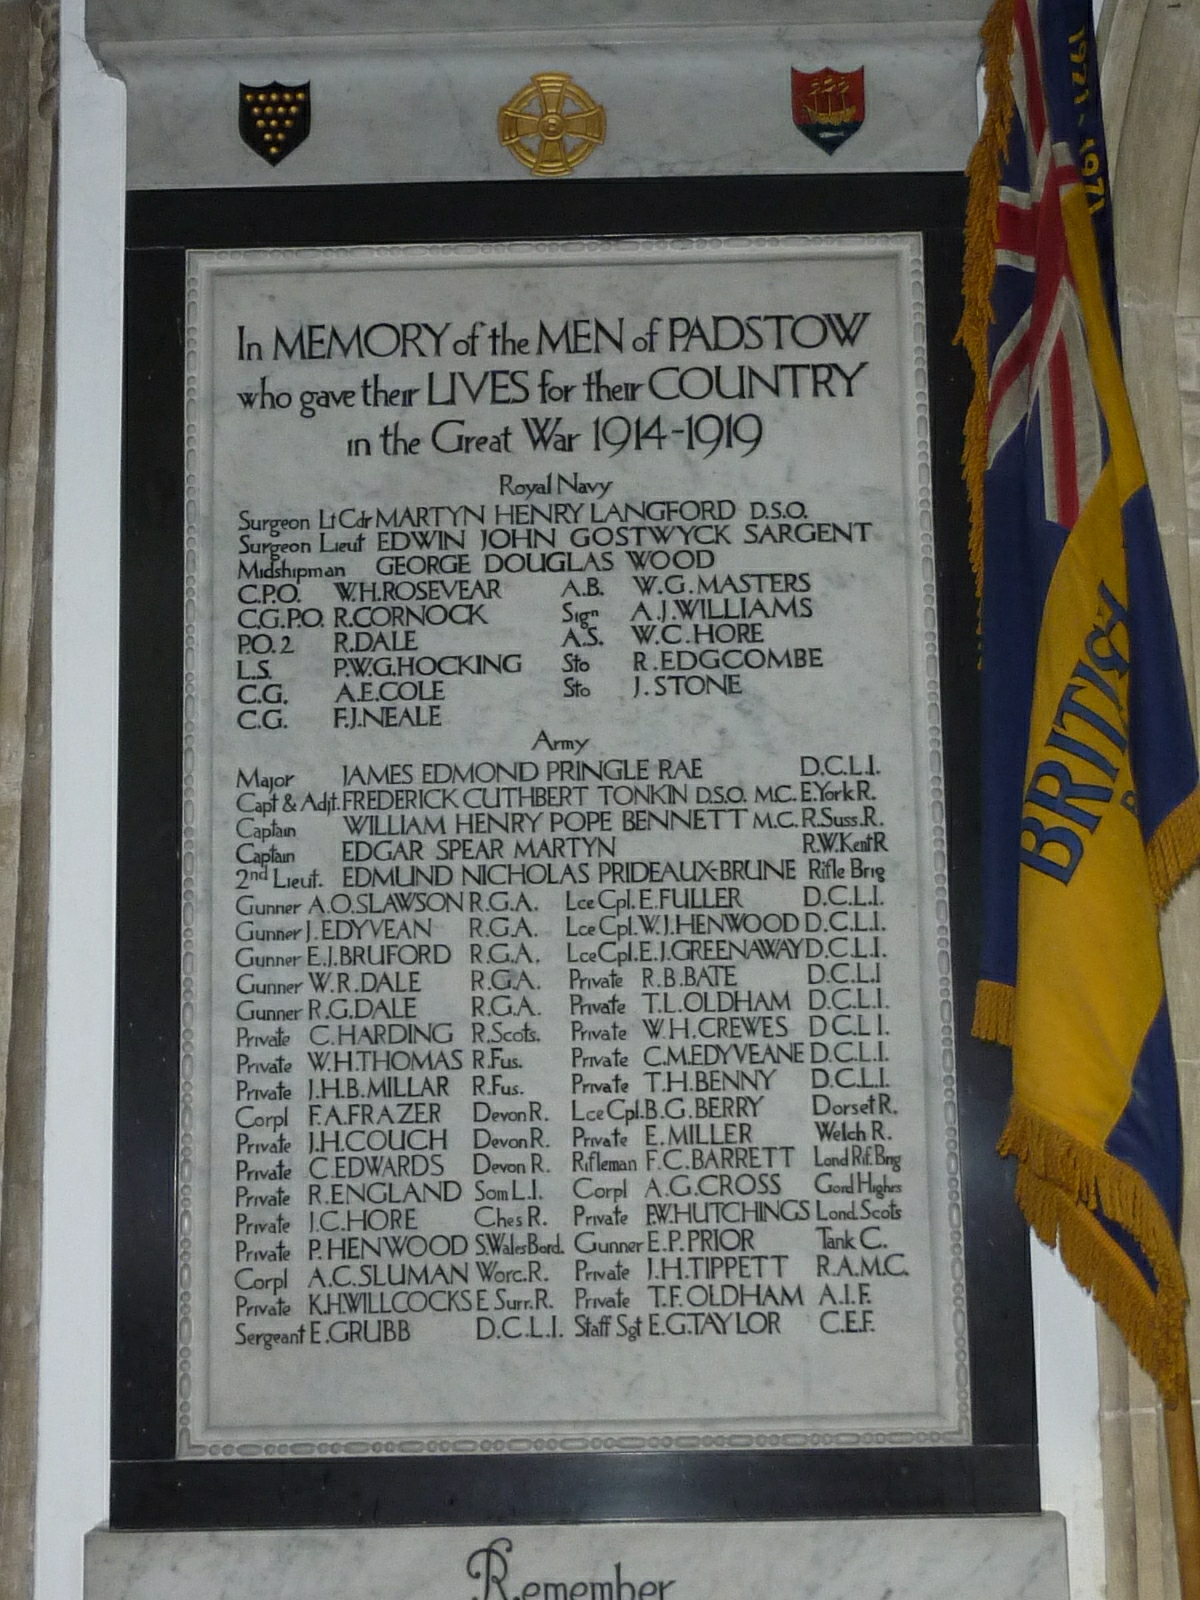 In MEMORY of the MEN of PADSTOW
who gave their LIVES for their COUNTRY
in the Great War 1914-1919
Royal Navy
Surgeon Lt Cdr MARTYN HENRY LANGFORD D.S.O.
Surgeon Lieut EDWIN JOHN GOSTWYCK SARGENT
Midshipman GEORGE DOUGLAS WOOD
C.P.O. W.H.ROSEVEAR A.B. W.G.MASTERS
C.G.P.O. R.CORNOCK Sign A.J.WILLIAMS
P.O.2 R.DALE A.S. W.C.HORE
L.S. P.W.G.HOCKING Sto R.EDGCOMBE
C.G. A.E.COLE Sto J.STONE
C.G. F.J.NEALE
Army
Major JAMES EDMOND PRINGLE RAE D.C.L.I.
Capt & Adjt. FREDERICK CUTHBERT TONKIN D.S.O. M.C. E.York R.
Captain WILLIAM HENRY POPE BENNETT M.C. R.Suss.R.
Captain EDGAR SPEAR MARTYN R.W.Kent R
2nd Lieut. EDMUND NICHOLAS PRIDEAUX-BRUNE Rifle Brig
Gunner A.O.SLAWSON R.G.A. Lce Cpl. E.FULLER D.C.L.I.
Gunner J.EDYVEAN R.G.A. Lce Cpl. W.J.HENWOOD D.C.L.I.
Gunner E.J.BRUFORD R.G.A. Lce Cpl. E.J.GREENAWAY D.C.L.I.
Gunner W.R.DALE R.G.A. Private R.B.BATE D.C.L.I
Gunner R.G.DALE R.G.A. Private T.L.OLDHAM D.C.L.I.
Private C.HARDING R.Scots. Private W.H.CREWES D C.L.I.
Private W.H.THOMAS R.Fus. Private C.M.EDYVEANE D.C.L.I.
Private J.H.B.MILLAR R.Fus. Private T.H.BENNY D.C.L.I.
Corpl F.A.FRAZER Devon R. Lce Cpl. B.G.BERRY Dorset R.
Private J.H.COUCH Devon R. Private E.MILLER Welch R.
Private C.EDWARDS Devon R. Rifleman F.C.BARRETT Lond Rif. Brig
Private R.ENGLAND Som L.I. Corpl A.G.CROSS Gord Highrs
Private J.C.HORE Ches R. Private P.W.HUTCHINGS Lond. Scots
Private P.HENWOOD S.Wales Bord. Gunner E.P.PRIOR Tank C.
Corpl A.C.SLUMAN Worc.R. Private J.H.TIPPETT R.A.M.C.
Private K.H.WILLCOCKS E Surr.R. Private T.F.OLDHAM A.I.F.
Sergeant E.GRUBB D.C.L.I. Staff Sgt E.G.TAYLOR C.E.F.
Remember
1921-1971
BRITISH